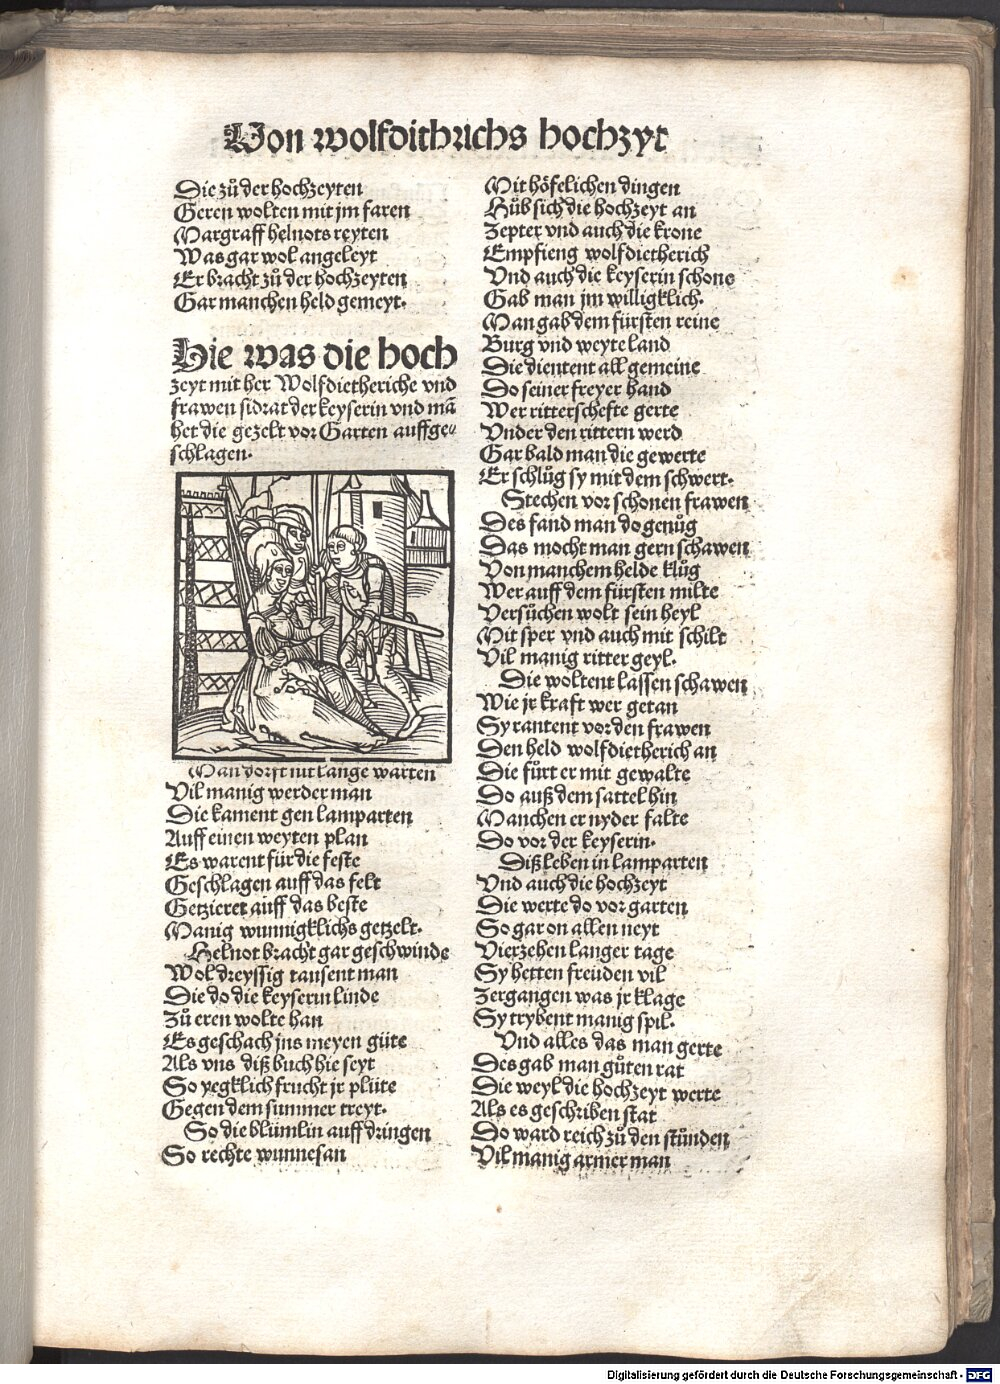 Von wolfdithrichs hochzyt
Die zů der hochzeyten
Geren wolten mit jm faren
Margraff helnots reyten
Was gar wol angeleyt
Er bracht zů der hochzeyten
Gar manchen held gemeyt.
Hie was die hoch
zeyt mit her Wolfdietheriche vnd
frawen sidrat der keyserin vnd mā
het die gezelt vor Garten auffge⸗
schlagen.
Man dorft nit lange warten
Vil manig werder man
Die kament gen lamparten
Auff einen weyten plan
Es warent für die feste
Geschlagen auff das felt
Getzieret auff das beste
Manig wunnigklichs getzelt.
Helnot bracht gar geschwinde
Wol dreyssig tausent man
Die do die keyserin linde
Zů eren wolte han
Es geschach jns meyen güte
Als vns diß buch hie seyt
So yegklich frucht jr plüte
Gegen dem summer treyt.
So die blümlin auff dringen
So rechte wunnesan
Mit höfelichen dingen
Hůb sich die hochzeyt an
Zepter vnd auch die krone
Empfieng wolfdietherich
Vnd auch die keyserin schone
Gab man jm willigklich.
Man gab dem fürsten reine
Burg vnd weyte land
Die dientent all gemeine
Do seiner freyer hand
Wer ritterschefte gerte
Vnder den rittern werd
Gar bald man die gewerte
Er schlůg sy mit dem schwert.
Stechen vor schonen frawen
Des fand man do genůg
Das mocht man gern schawen
Von manchem helde klůg
Wer auff dem fürsten milte
Versůchen wolt sein heyl
Mit sper vnd auch mit schilt
Vil manig ritter geyl.
Die woltent lassen schawen
Wie jr kraft wer getan
Sy rantent vor den frawen
Den held wolfdietherich an
Die fůrt er mit gewalte
Do auß dem sattel hin
Manchen er nyder falte
Do vor der keyserin.
Diß leben in lamparten
Vnd auch die hochzeyt
Die werte do vor garten
So gar on allen neyt
Vierzehen langer tage
Sy hetten freüden vil
Zergangen was jr klage
Sy trybent manig spil.
Vnd alles das man gerte
Des gab man gůten rat
Die weyl die hochzeyt werte
Als es geschriben stat
Do ward reich zů den stůnden
Vil manig armer man
Digitalisierung gefördert durch die Deutsche Forschungsgemeinschaft - DFG